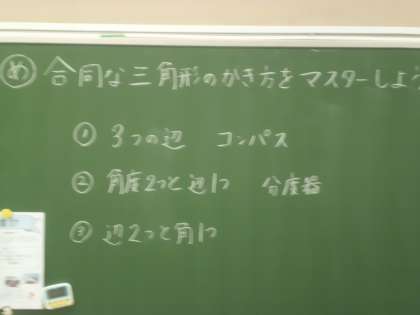 め 合同な三角形のかき方をマスターしよう
① 3つの辺 コンパス
② 角度2つと辺1つ 分度器
③ 辺2つと角1つ